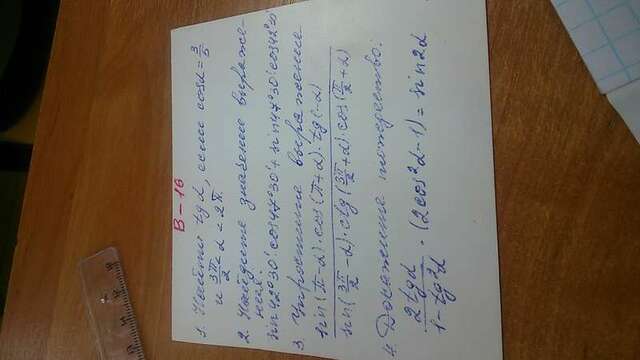 В-16
1. Найти tg α, если cos α = 3/5
и 3π/2 < α < 2π.
2. Найдите значение выраже-
ния.
sin 42°30′ cos 47°30′ + sin 47°30′ cos 42°30′
3. Упростите выражение
sin(π-α)·cos(π+α)·tg(-α)
sin(3π/2 - α)·ctg(3π/2 + α)·cos(π/2 + α)
4. Докажите тождество:
2tgα/1-tg²α · (2cos²α-1) = sin2α